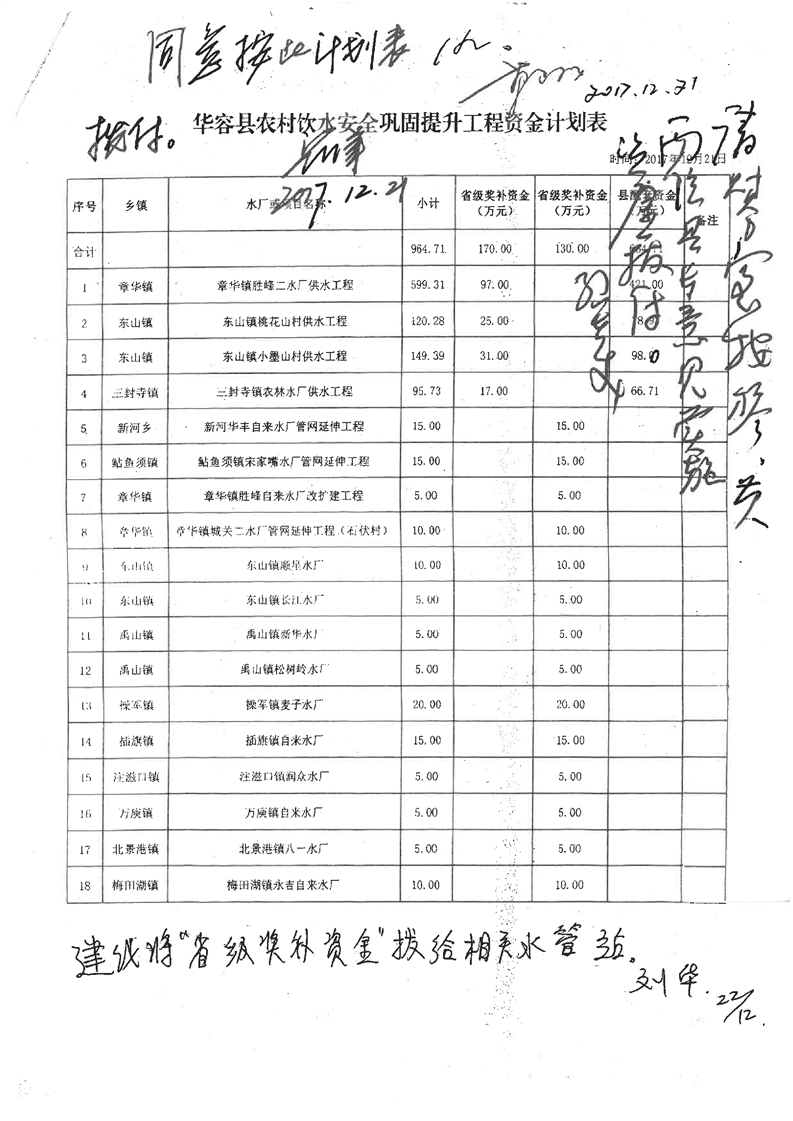 同意按此计划表
2017.12.21
拨付。
华容县农村饮水安全巩固提升工程资金计划表
2017.12.21
时间：2017年12月21日
序号 乡镇 水厂或项目名称 小计 省级奖补资金（万元） 省级奖补资金（万元） 县配套资金（万元） 备注
合计 964.71 170.00 130.00
1 章华镇 章华镇胜峰二水厂供水工程 599.31 97.00 421.00
2 东山镇 东山镇桃花山村供水工程 120.28 25.00
3 东山镇 东山镇小墨山村供水工程 149.39 31.00 98.0
4 三封寺镇 三封寺镇农林水厂供水工程 95.73 17.00 66.71
5 新河乡 新河华丰自来水厂管网延伸工程 15.00 15.00
6 鲇鱼须镇 鲇鱼须镇宋家嘴水厂管网延伸工程 15.00 15.00
7 章华镇 章华镇胜峰自来水厂改扩建工程 5.00 5.00
8 章华镇 章华镇城关二水厂管网延伸工程（石伏村） 10.00 10.00
9 东山镇 东山镇顺星水厂 10.00 10.00
10 东山镇 东山镇长江水厂 5.00 5.00
11 禹山镇 禹山镇新华水厂 5.00 5.00
12 禹山镇 禹山镇松树岭水厂 5.00 5.00
13 操军镇 操军镇麦子水厂 20.00 20.00
14 插旗镇 插旗镇自来水厂 15.00 15.00
15 注滋口镇 注滋口镇润众水厂 5.00 5.00
16 万庾镇 万庾镇自来水厂 5.00 5.00
17 北景港镇 北景港镇八一水厂 5.00 5.00
18 梅田湖镇 梅田湖镇永吉自来水厂 10.00 10.00
建议将“省级奖补资金”拨给相关水管站。
刘华.
22/12.